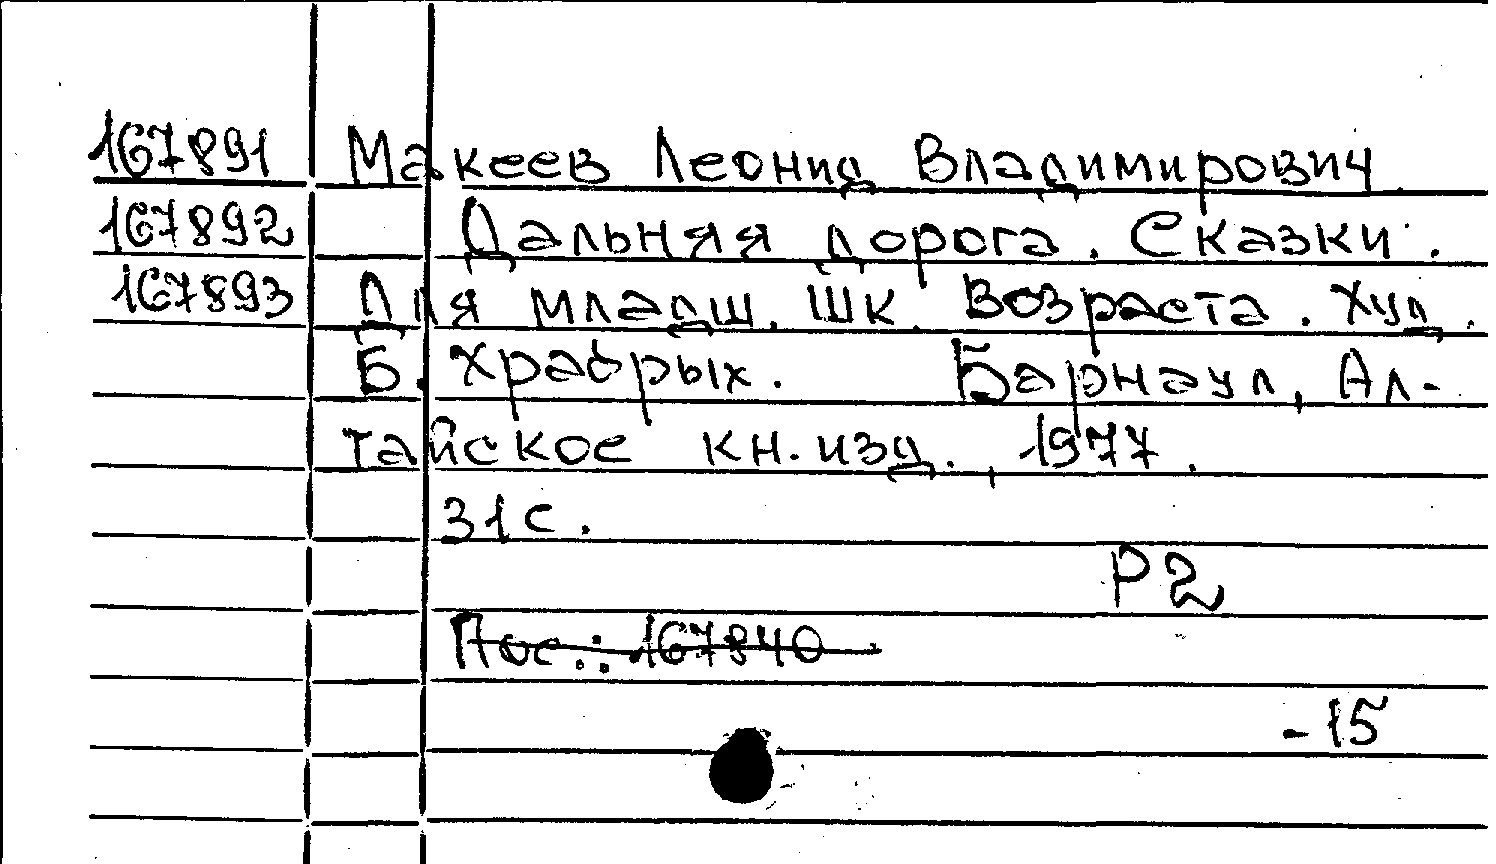 167891 Макеев Леонид Владимирович
167892 Дальняя дорога. Сказки.
167893 Для младш. шк. возраста. Худ.
Б. Храбрых. Барнаул, Ал-
тайское кн. изд., 1977.
31с.
Р2
Пос.: 167840
-15